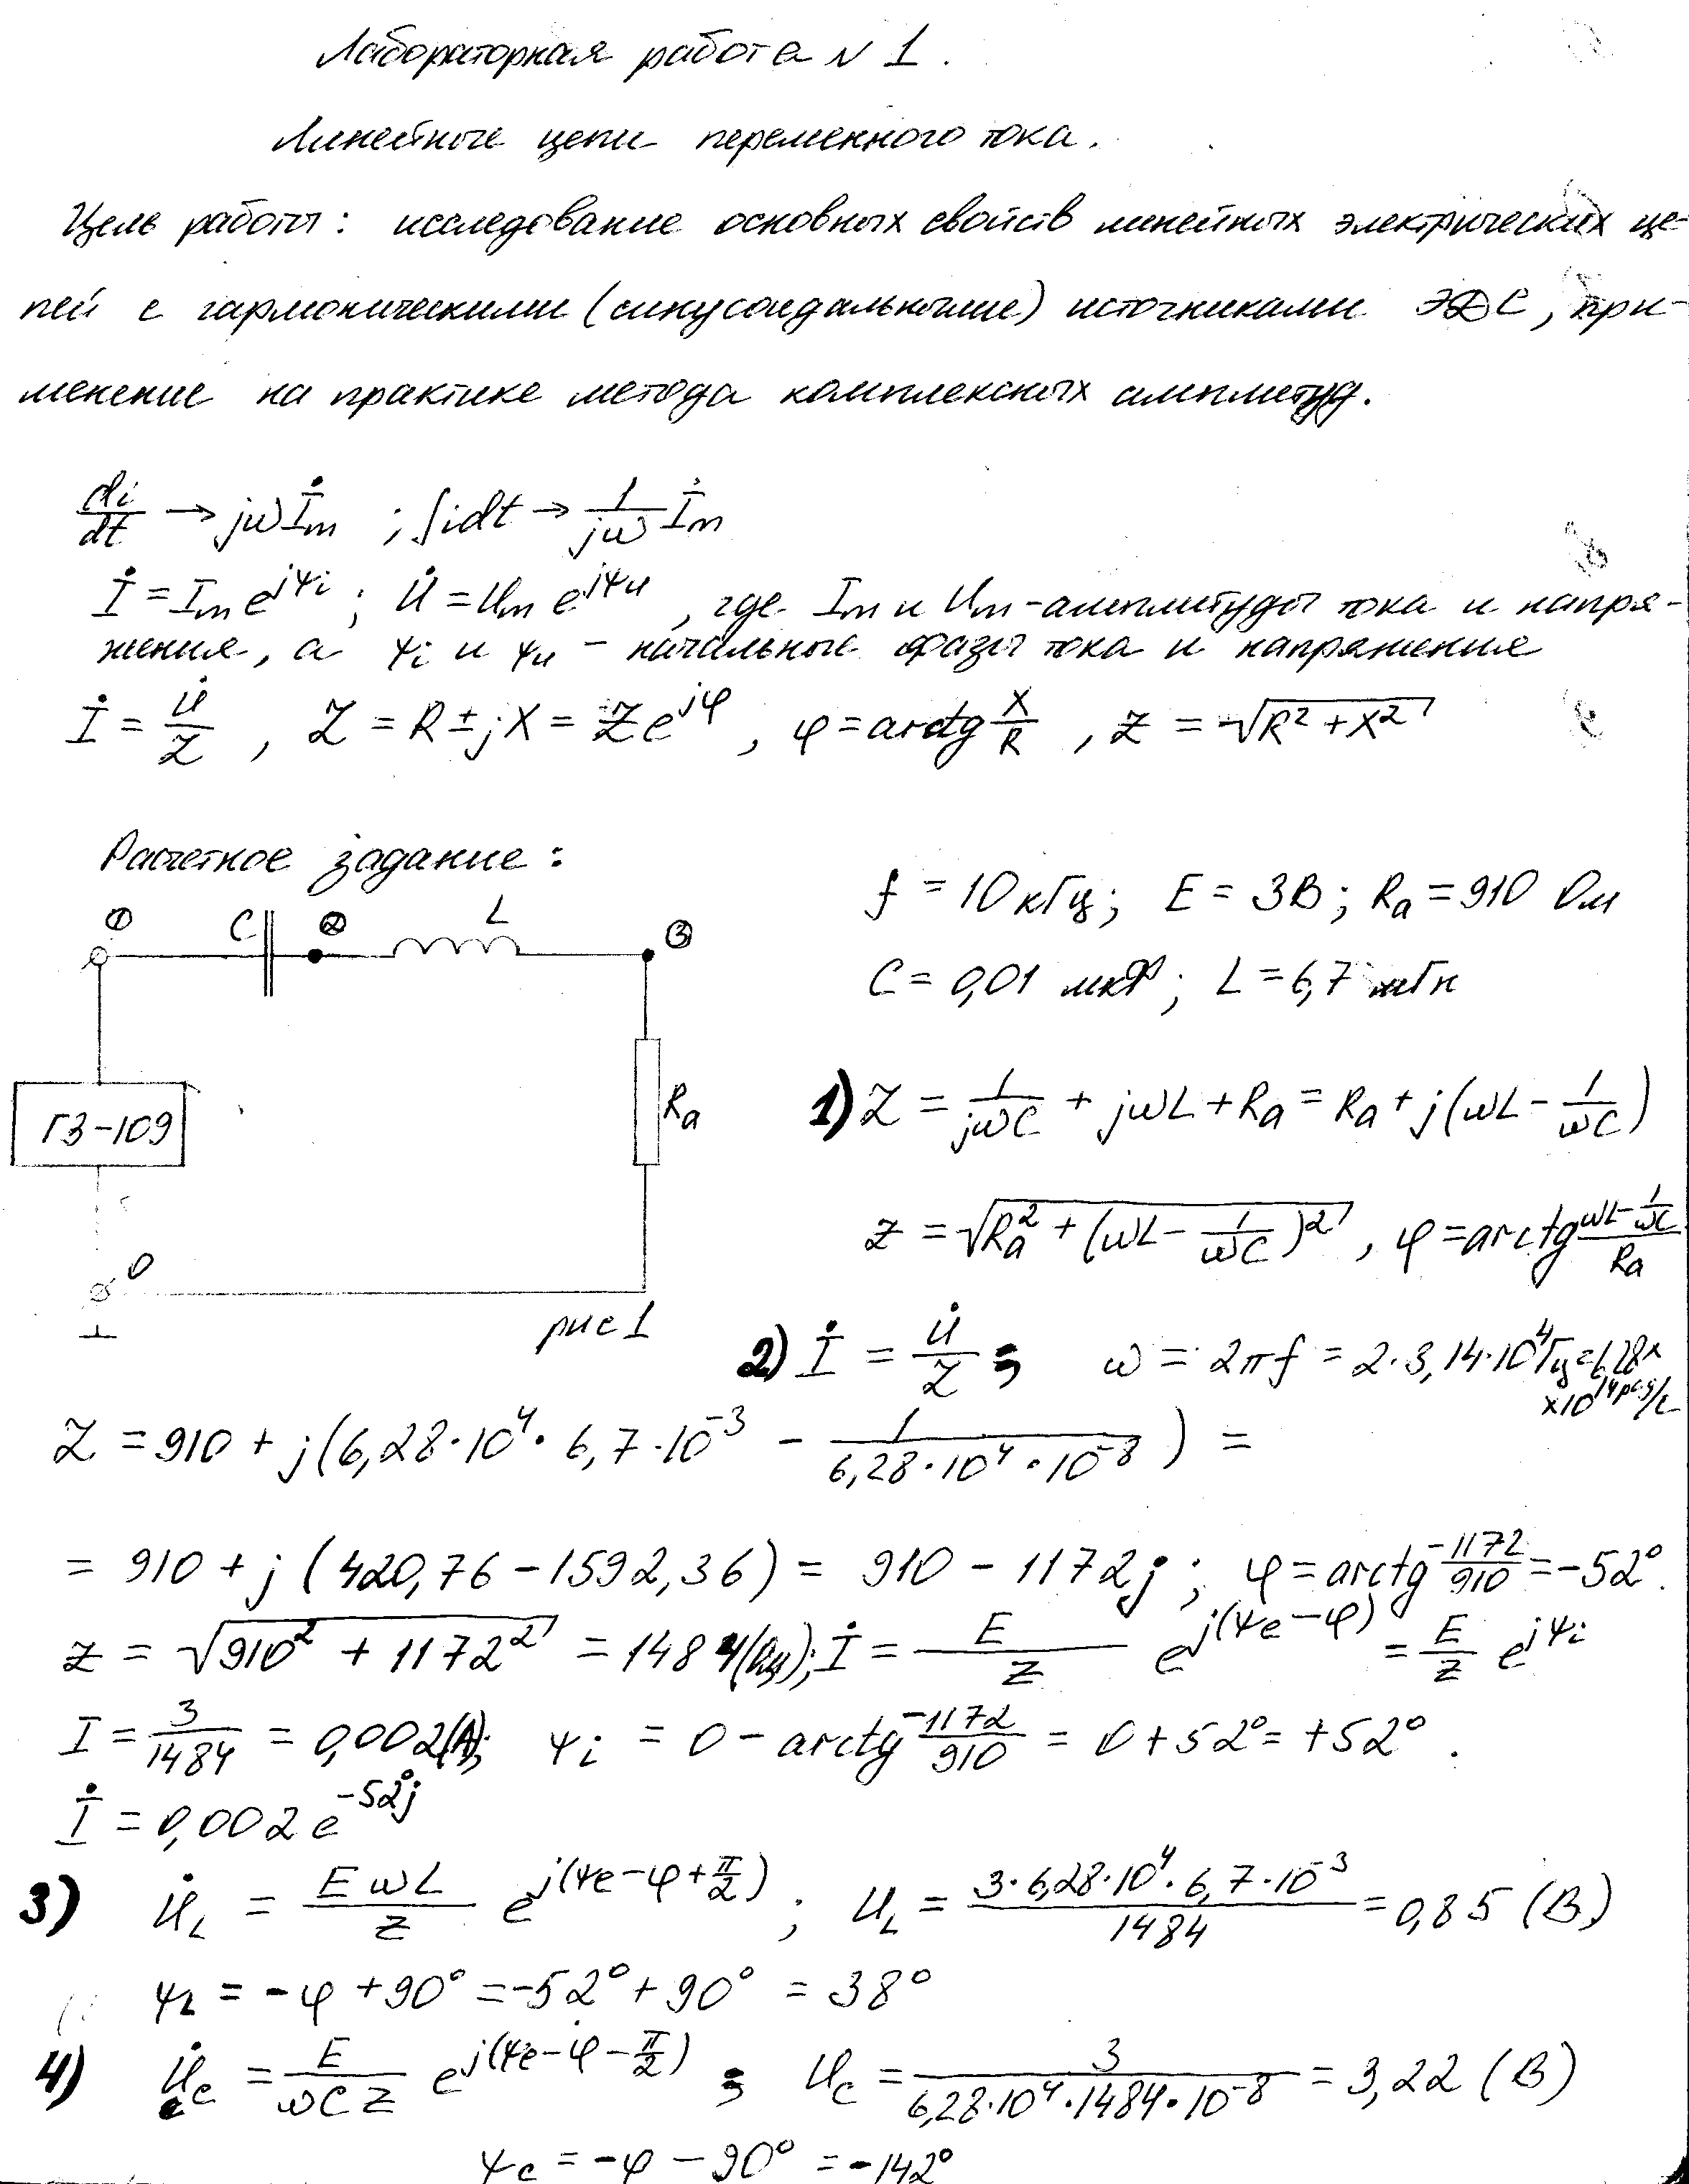 Лабораторная работа N 1.
Линейные цепи переменного тока.
Цель работы: исследование основных свойств линейных электрических це-
пей с гармоническими (синусоидальными) источниками ЭДС, при-
менение на практике метода комплексных амплитуд.
di/dt → jω İm ; ∫idt → 1/(jω) İm
İ = Im e^(jψi) ; U̇ = Um e^(jψu) , где Im и Um - амплитуды тока и напря-
жения, а ψi и ψu - начальные фазы тока и напряжения
İ = U̇/Z , Z = R ± jX = Z e^(jφ) , φ = arctg X/R , z = √(R² + X²)
Расчетное задание:
f = 10 кГц; E = 3В; Ra = 910 Ом
C = 0,01 мкФ; L = 6,7 мГн
① C ② L ③
ГЗ-109
Ra
0
рис 1
1) Z = 1/(jωC) + jωL + Ra = Ra + j(ωL - 1/(ωC))
z = √(Ra² + (ωL - 1/(ωC))²) , φ = arctg (ωL - 1/(ωC))/Ra
2) İ = U̇/Z ; ω = 2πf = 2·3,14·10⁴ Гц = 6,28×
×10⁴ рад/с
Z = 910 + j(6,28·10⁴·6,7·10⁻³ - 1/(6,28·10⁴·10⁻⁸)) =
= 910 + j(420,76 - 1592,36) = 910 - 1172j ; φ = arctg -1172/910 = -52°.
z = √(910² + 1172²) = 1484 (Ом); İ = E/z e^(j(ψe - φ)) = E/z e^(jψi)
I = 3/1484 = 0,002(А); ψi = 0 - arctg -1172/910 = 0 + 52° = +52°.
İ = 0,002 e^(-52°j)
3) U̇L = EωL/z e^(j(ψe - φ + π/2)) ; UL = 3·6,28·10⁴·6,7·10⁻³/1484 = 0,85 (В)
ψL = -φ + 90° = -52° + 90° = 38°
4) U̇c = E/(ωCz) e^(j(ψe - φ - π/2)) ; Uc = 3/(6,28·10⁴·1484·10⁻⁸) = 3,22 (В)
ψc = -φ - 90° = -142°